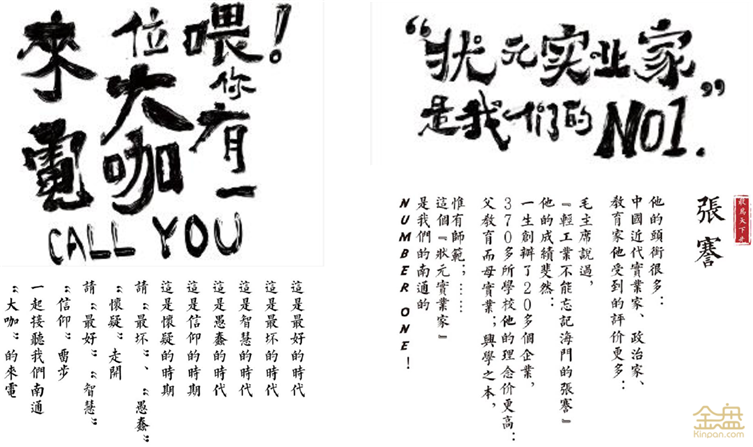 喂！你有一
位大咖
來電
CALL YOU
這是最好的時代
這是最坏的時代
這是智慧的時代
這是愚蠢的時代
這是信仰的時期
這是懷疑的時期
請“最坏”、“愚蠢”
“懷疑”走開
請“最好”“智慧”
“信仰”留步
一起接聽我們南通
“大咖”的來電
“状元实业家
是我们的NO1.”
張謇
他的頭銜很多：
中國近代實業家、政治家、
教育家他受到的評价更多：
毛主席說過，
『輕工業不能忘記海門的張謇』
他的成績斐然：
一生創辦了20多個企業，
370多所學校他的理念价更高：
父教育而母實業；興學之本，
惟有師範；……
這個『狀元實業家』
是我們的南通的
NUMBER ONE!
金盘
Kinpan.com